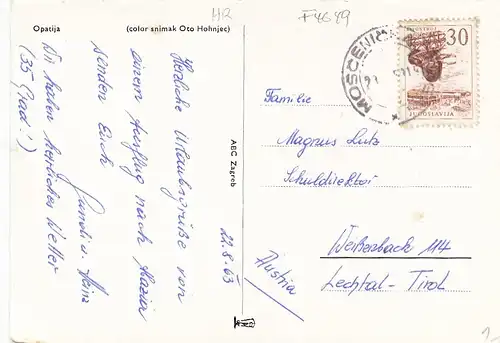 Opatija
(color snimak Oto Hohnjec)
HR
F4649
Herzliche Urlaubsgrüße von
einem Ausflug nach
senden Euch
u. Heinz
Wir haben herrliches Wetter
(35 Grad!)
22.8.63
ABC Zagreb
MOSCENIC
30
JUGOSLAVIJA
Familie
Magnus Lutz
Schuldirektor
Weißenbach 114
Lechtal-Tirol
Austria